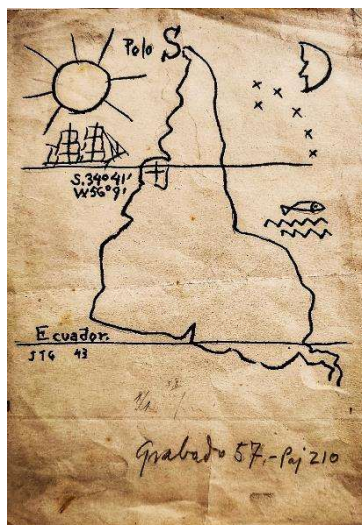 Polo S.
S. 34° 41'
W 56° 9'
Ecuador.
JTG 43
Grabado 57.- Paj 210